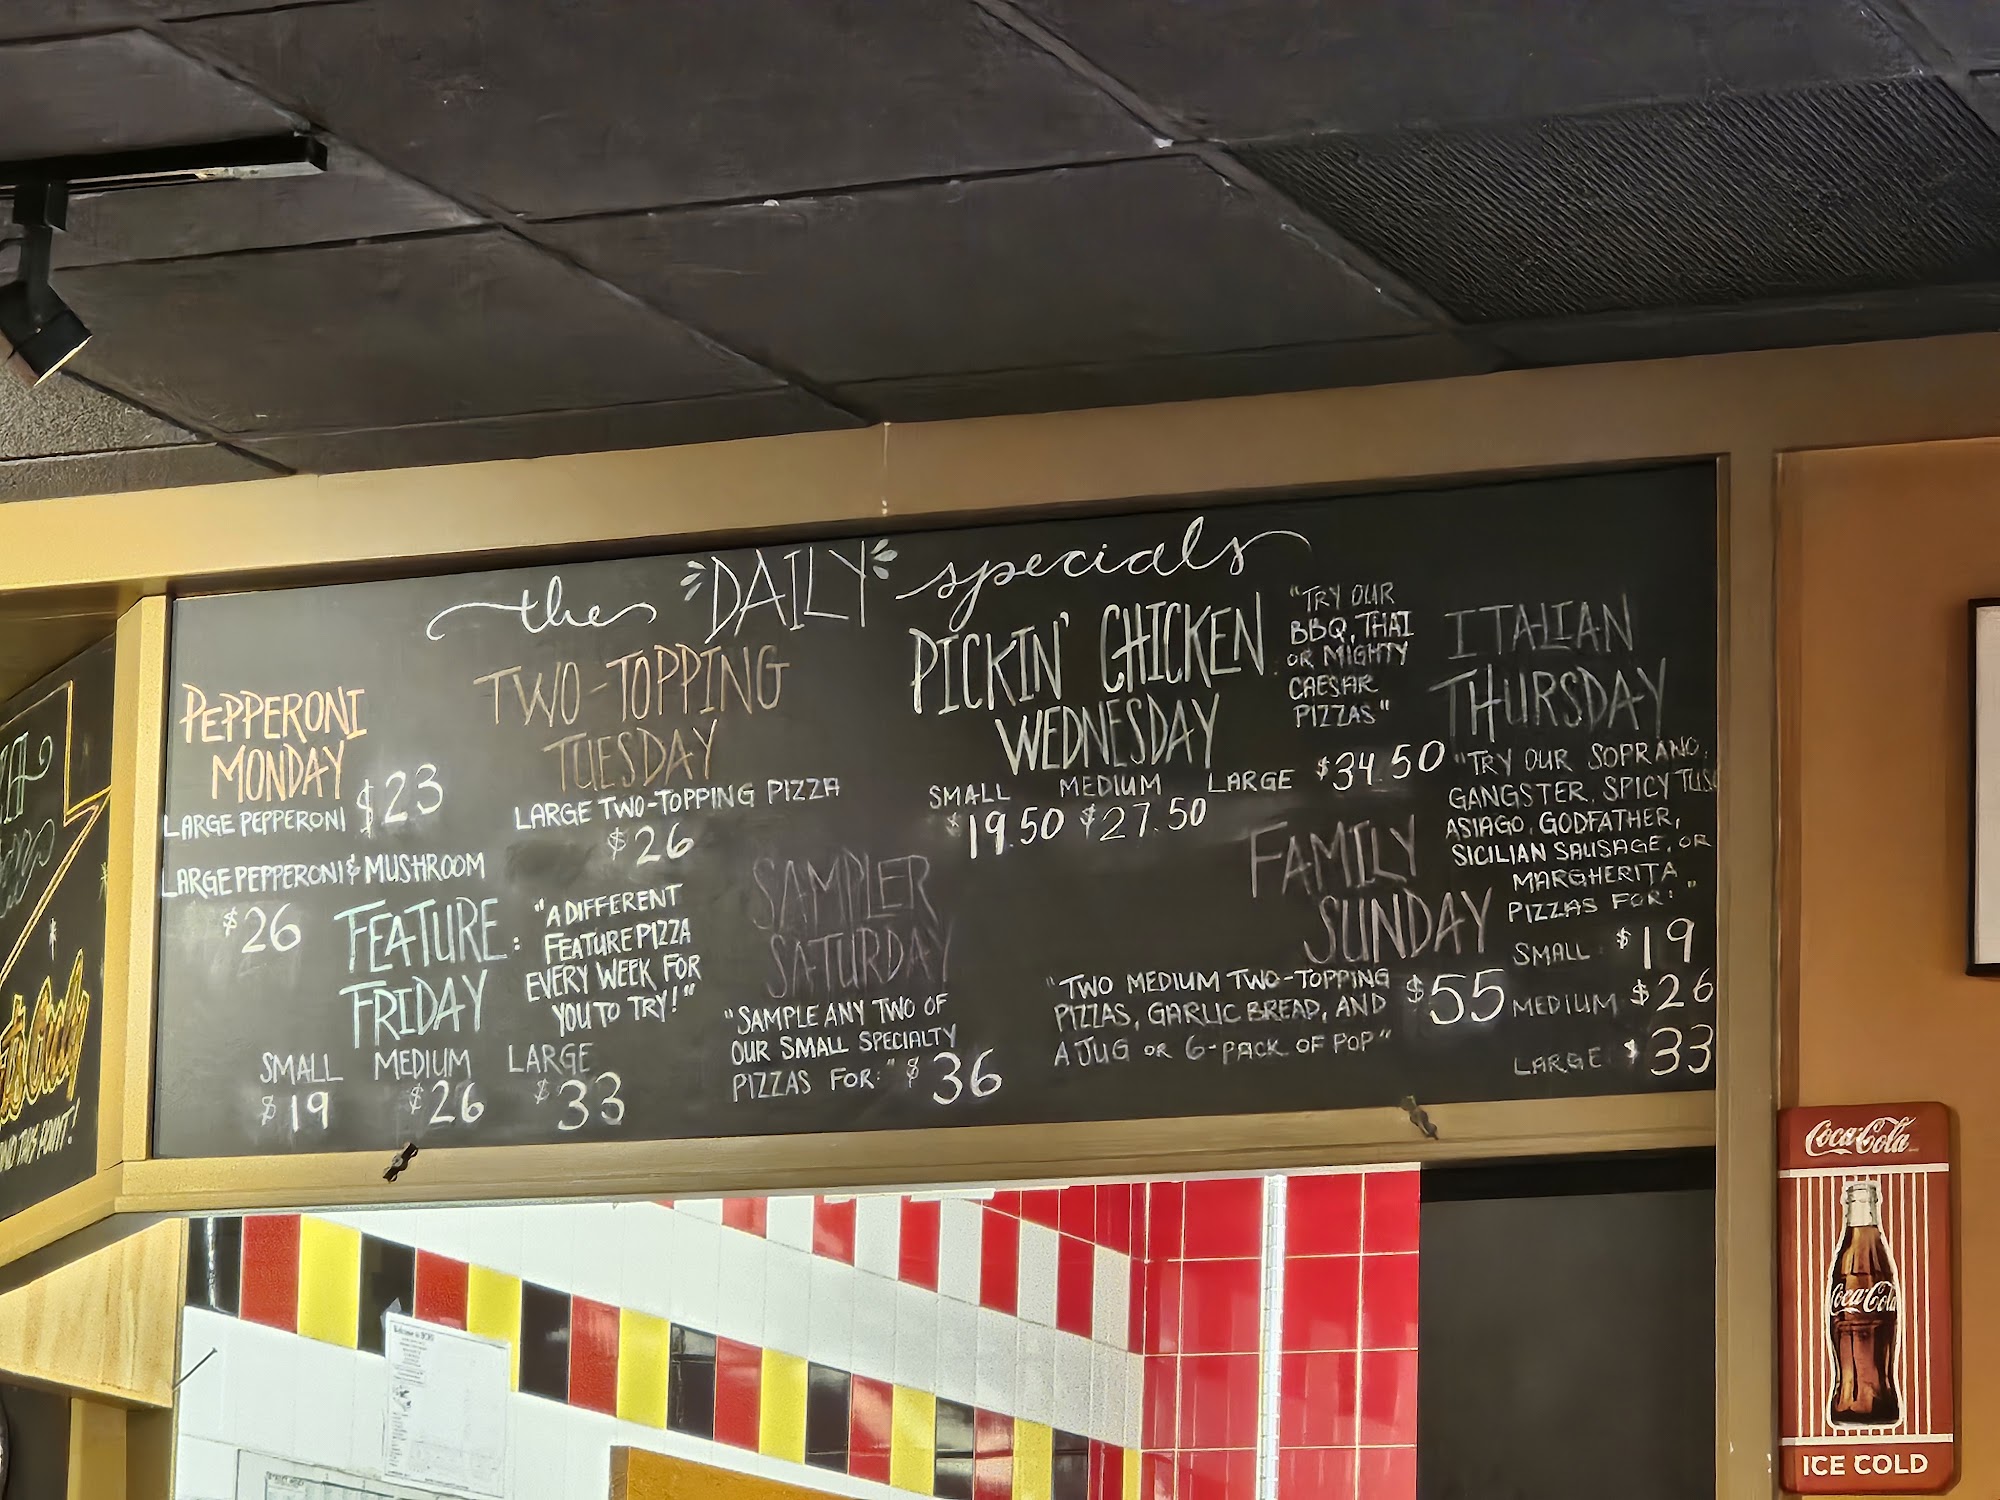 the "DAILY" specials
PEPPERONI
MONDAY
LARGE PEPPERONI $23
LARGE PEPPERONI & MUSHROOM
$26
TWO-TOPPING
TUESDAY
LARGE TWO-TOPPING PIZZA
$26
PICKIN' CHICKEN
WEDNESDAY
"TRY OUR
BBQ, THAI
OR MIGHTY
CAESAR
PIZZAS"
SMALL MEDIUM LARGE $34.50
$19.50 $27.50
ITALIAN
THURSDAY
"TRY OUR SOPRANO,
GANGSTER, SPICY
ASIAGO, GODFATHER,
SICILIAN SAUSAGE, OR
MARGHERITA
PIZZAS FOR:"
SMALL $19
MEDIUM $26
LARGE $33
FEATURE :
FRIDAY
"A DIFFERENT
FEATURE PIZZA
EVERY WEEK FOR
YOU TO TRY!"
SMALL MEDIUM LARGE
$19 $26 $33
SAMPLER
SATURDAY
"SAMPLE ANY TWO OF
OUR SMALL SPECIALTY
PIZZAS FOR:" $36
FAMILY
SUNDAY
"TWO MEDIUM TWO-TOPPING
PIZZAS, GARLIC BREAD, AND
A JUG OR 6-PACK OF POP"
$55
THIS POINT!
Coca-Cola
Coca-Cola
ICE COLD